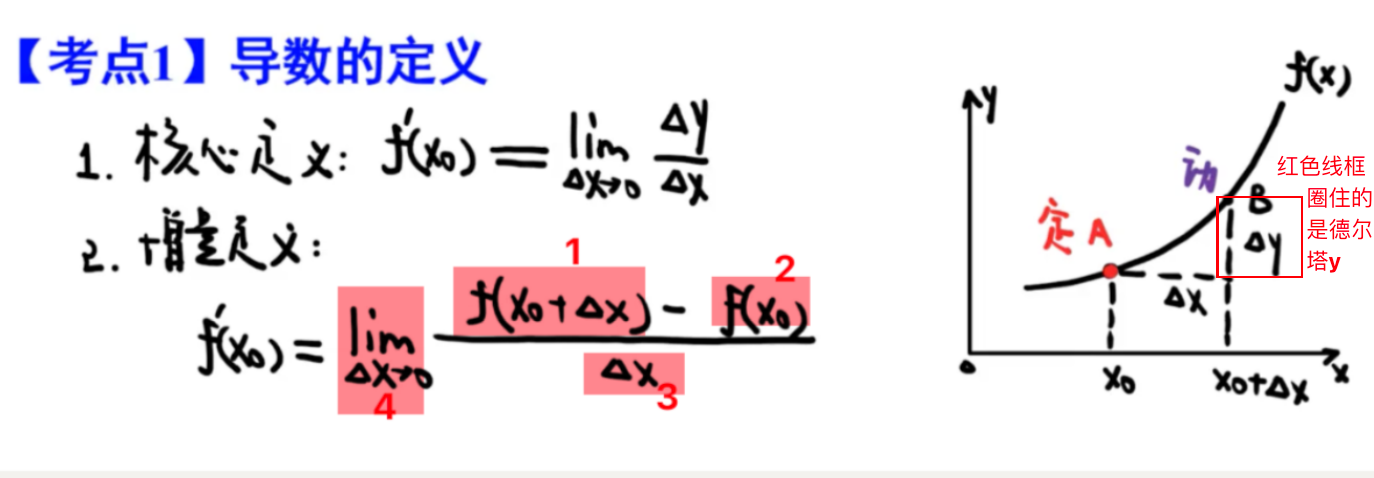 【考点1】导数的定义
1. 核心定义: f'(x₀) = lim Δx→0 Δy/Δx
2. 增量定义:
f'(x₀) = lim Δx→0 f(x₀+Δx) - f(x₀) / Δx
1
2
3
4
y
f(x)
动
B
定 A
Δy
Δx
0
x₀
x₀+Δx
x
红色线框
圈住的
是德尔
塔y